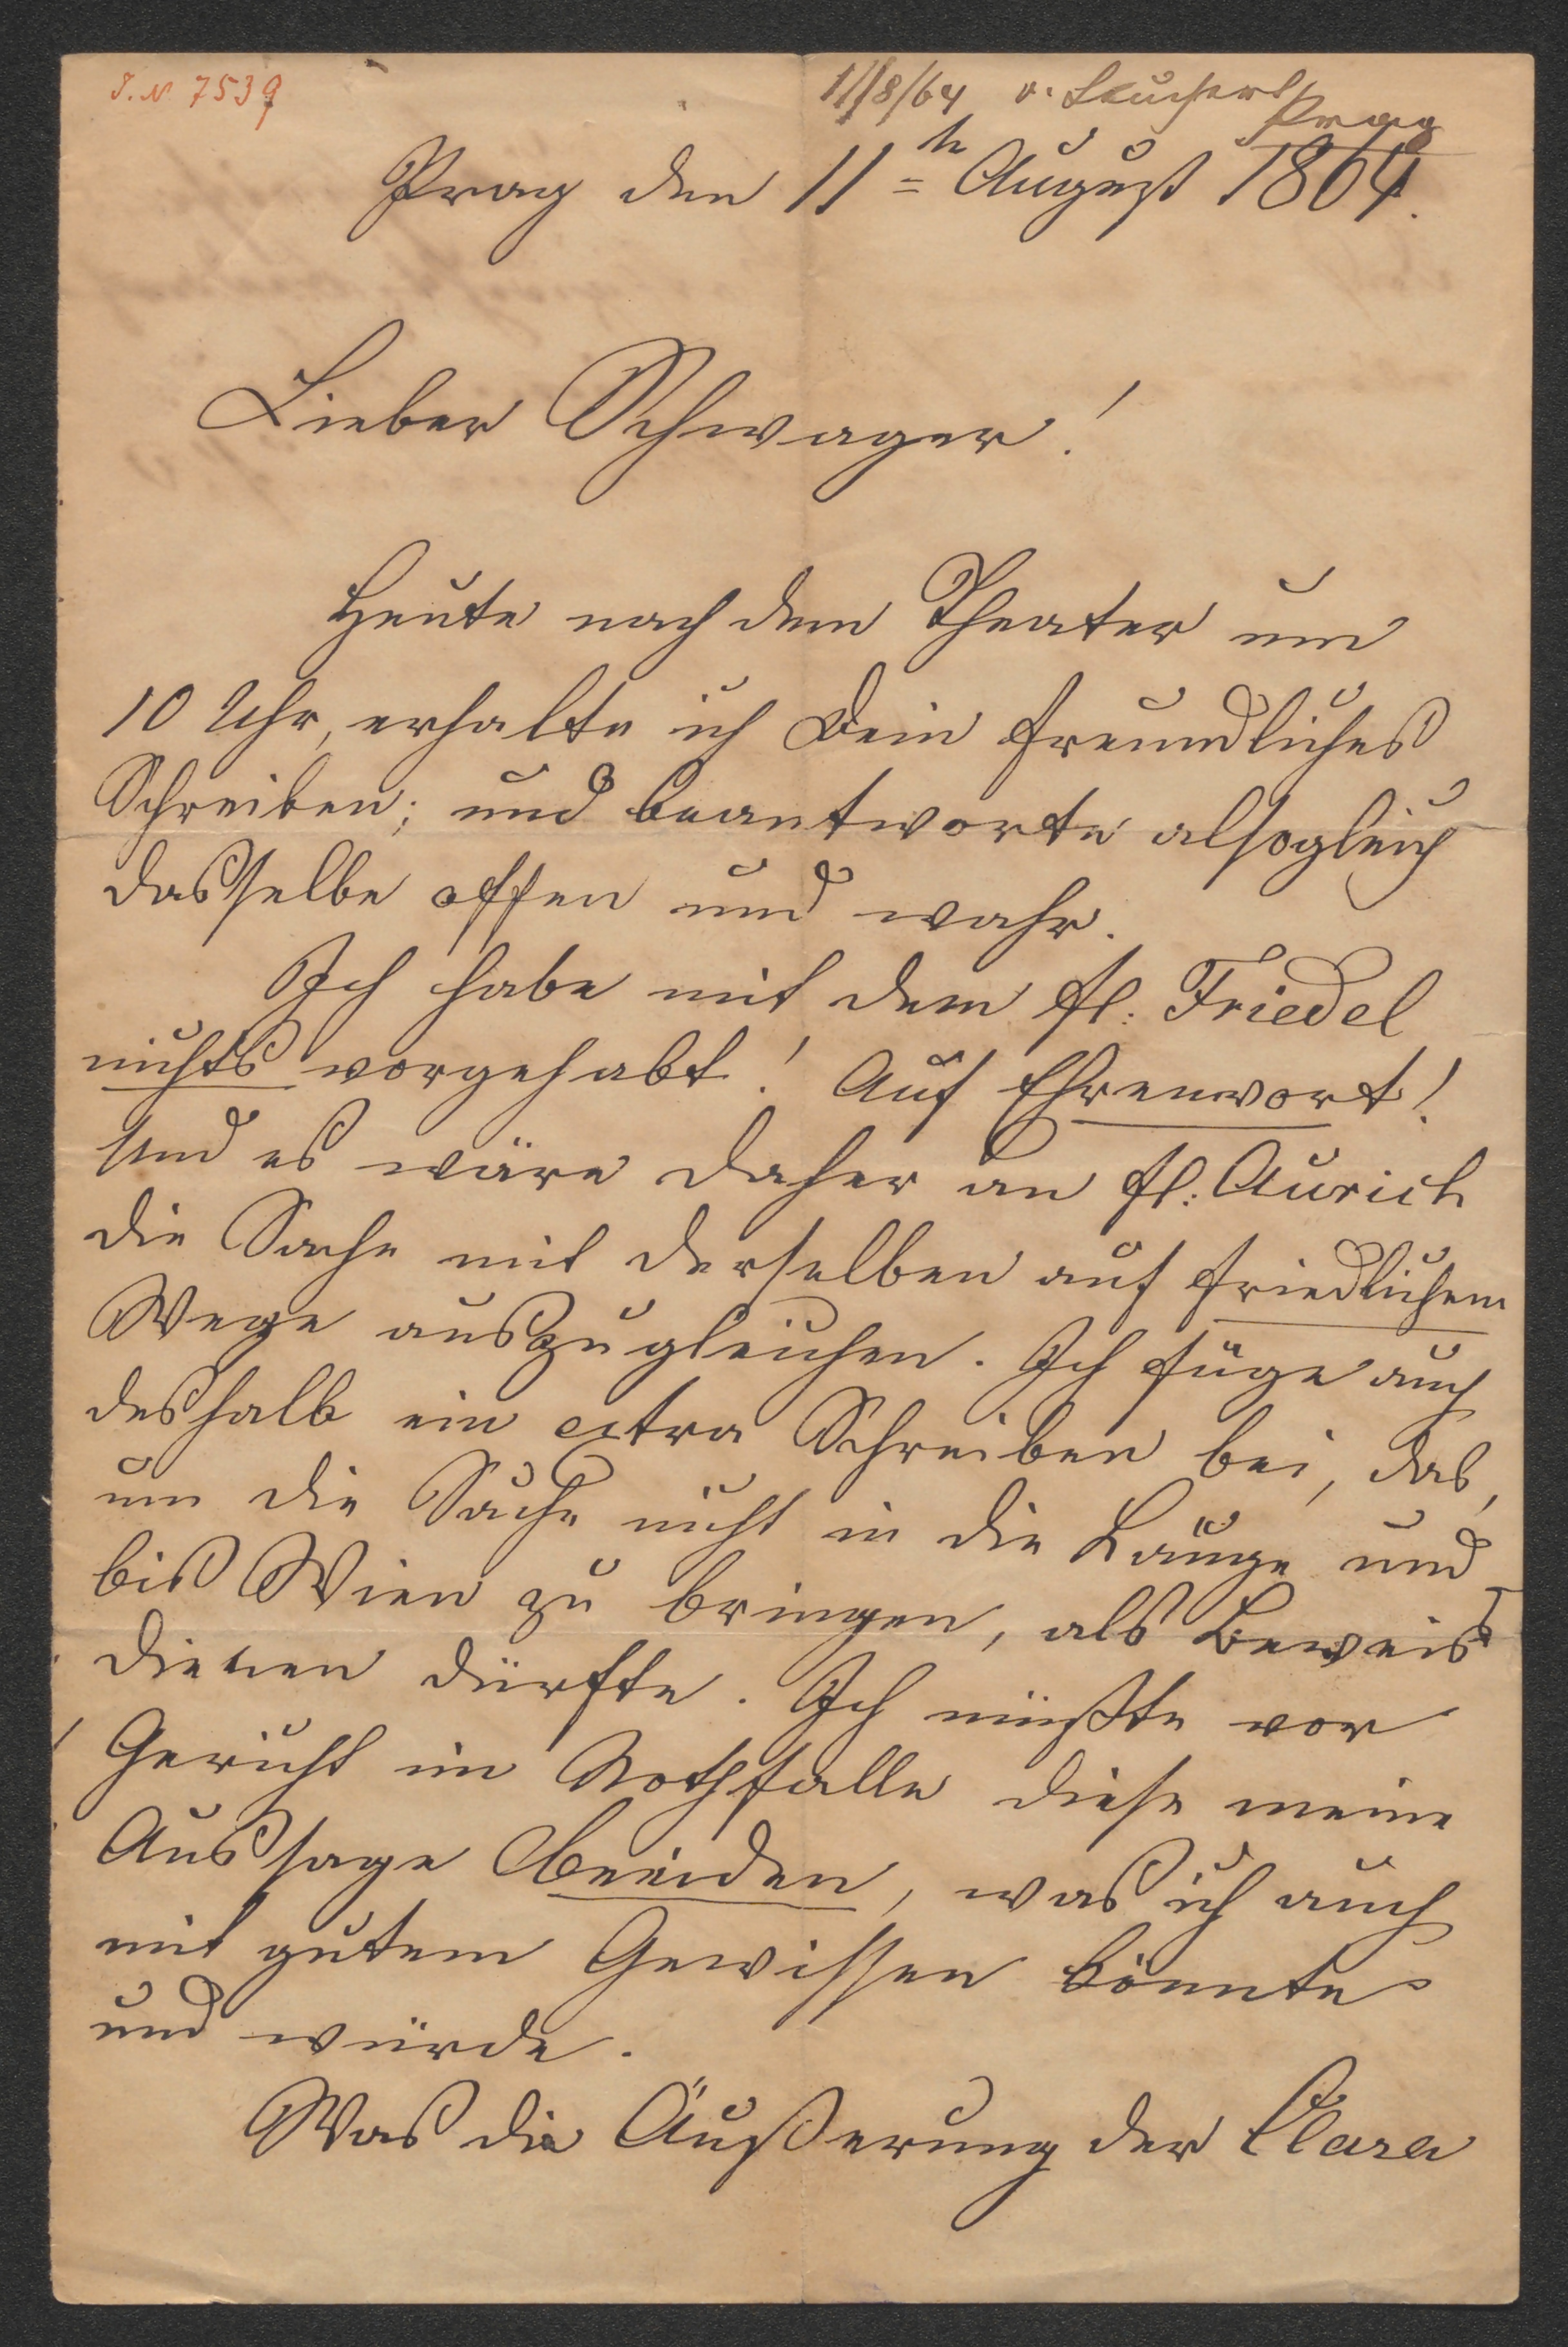 I. N. 7539
11/8/64 v. Leuchert
Prag
Prag den 11te August 1864.
Lieber Schwager!
Heute nach dem Theater um
10 Uhr, erhalte ich Dein freundliches
Schreiben; und beantworte alsogleich
dasselbe offen und wahr.
Ich habe mit dem Fl: Friedel
nichts vorgehabt! Auf Ehrenwort!
Und es wäre daher an Fl: Aurich
die Sache mit derselben auf friedlichem
Wege auszugleichen. Ich füge auch
deshalb ein extra Schreiben bei, das,
um die Sache nicht in die Länge und
bis Wien zu bringen, als Beweis
dienen dürfte. Ich müßte vor
Gericht im Nothfalle diese meine
Aussage beeiden, was ich auch
mit gutem Gewissen könnte
und würde.
Was die Äußerung der Clara